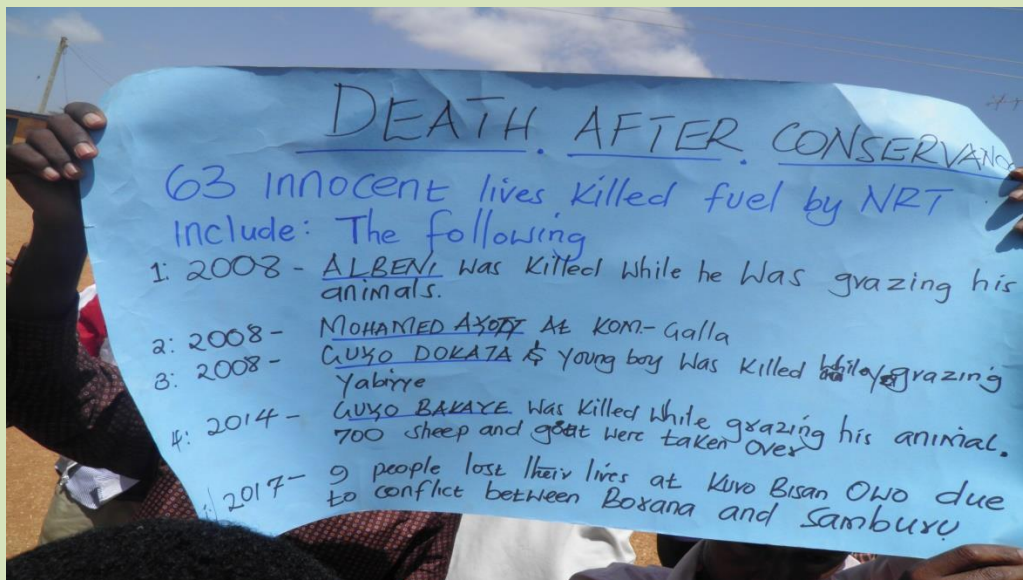 DEATH. AFTER. CONSERVANC
63 innocent lives killed fuel by NRT
include: The following
1: 2008 - ALBENI was killed while he was grazing his
animals.
2: 2008 - MOHAMED AYOTT At KOM-Galla
3: 2008 - GUYO DOKATA & young boy was killed while grazing
Yabirye
4: 2014 - GUYO BAKAYE was killed while grazing his animal.
700 sheep and goat were taken over
2017 - 9 people lost their lives at Kuro Bisan Owo due
to conflict between Borana and Samburu